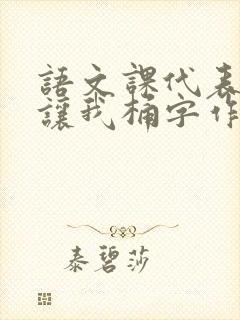 語文課代表
讓我桶字作
泰碧莎